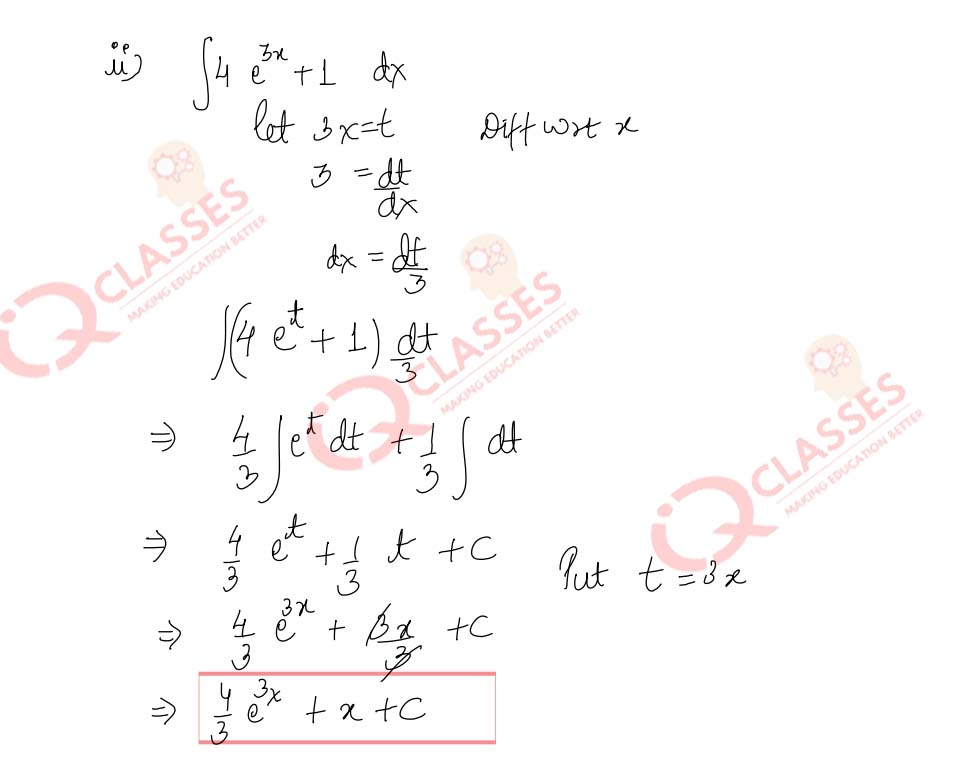 ii) ∫4 e^{3x} + 1 dx
let 3x=t Diff wrt x
3 = dt/dx
dx = dt/3
∫(4 e^t + 1) dt/3
⇒ 4/3 ∫e^t dt + 1/3 ∫ dt
⇒ 4/3 e^t + 1/3 t + C
Put t = 3x
⇒ 4/3 e^{3x} + 3x/3 + C
⇒ 4/3 e^{3x} + x + C
iQ CLASSES
MAKING EDUCATION BETTER
iQ CLASSES
MAKING EDUCATION BETTER
iQ CLASSES
MAKING EDUCATION BETTER